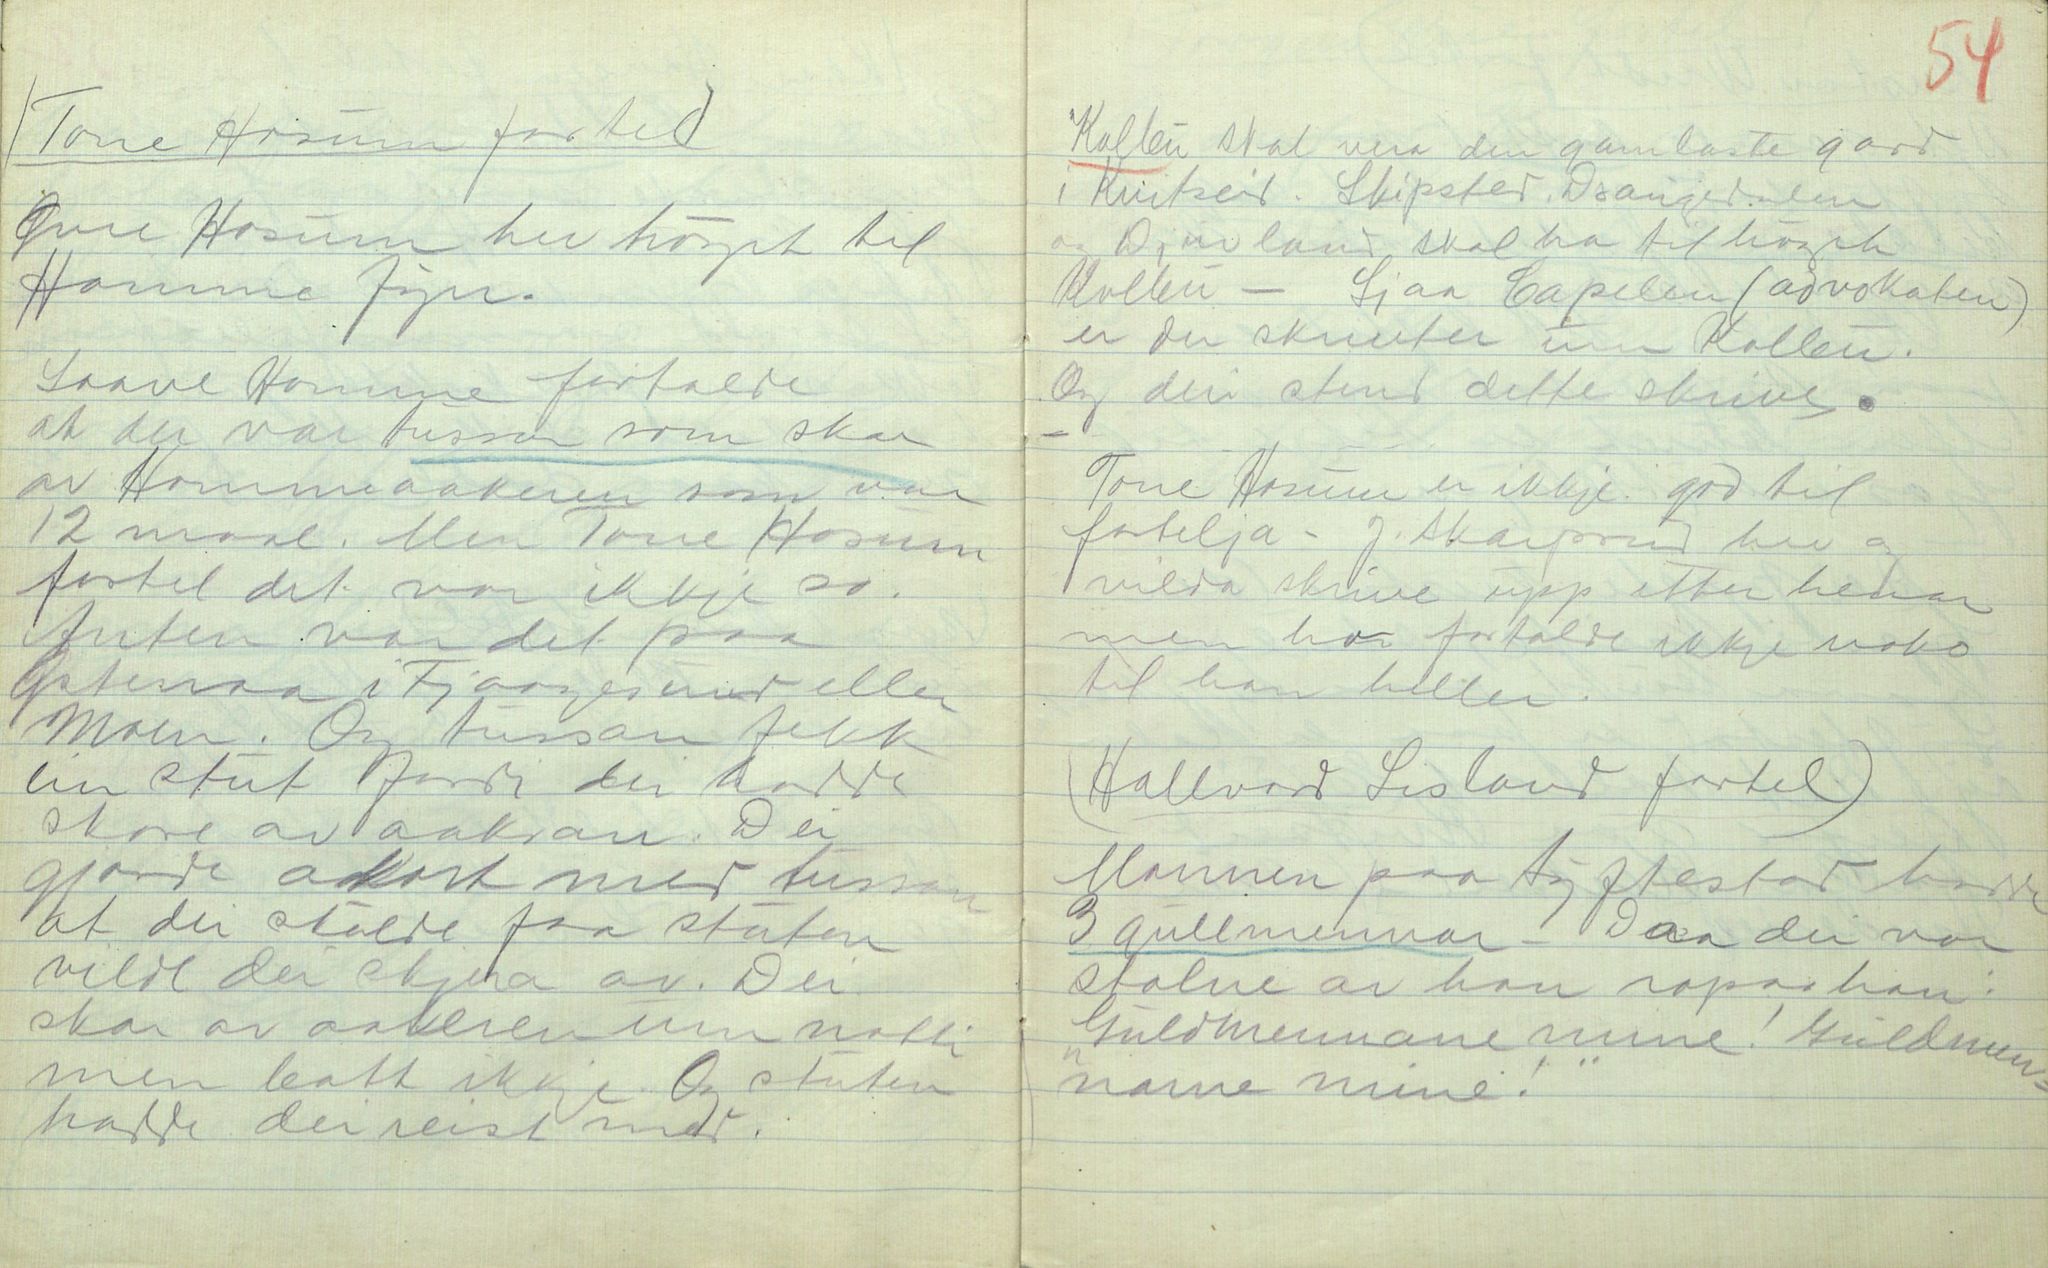 (Tone Hosum fortel)
Øvre Hosum hev høyrt til
Homme fyrr.
Saave Homme fortalde
at der var tussar som skar
av Hommeaakeren som var
12 maal. Men Tone Hosum
fortel det var ikkje so.
Anten var det paa
i Fjaagesund eller
Moen. Og tussan fekk
ein stut fordi dei hadde
skore av aakran. Dei
gjorde akkort med tussan
at dei stolde faa stuten
vilde dei skjera av. Dei
skar av aakeren um notti
men batt ikkje. Og stuten
hadde dei reist med.
54
Kolten skal vera den gamlaste gard
i Kvitseid. Skipsted, Drangedalen
og Djuvland skal ha til høyrt
Kolten — Sjaa Capelen (advokaten)
er der skrivter um Kolten.
Og dei stend dette skrive.
Tone Hosum er ikkje god til
fortelja - J. Skarprud hev og
vilda skrive upp etter henar
men ho fortalde ikkje noko
til han heller.
(Hallvard Lisland fortel)
Mannen paa Tyftestad hadde
3 gullmennar - Daa dei var
stolne av han ropar han:
"Guldmennane mine! Guldmen=
nane mine!"